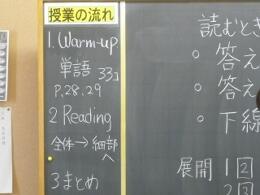 授業の流れ
1. Warm-up
単語 33コ
P.28.29
2 Reading
全体→細部
へ
3 まとめ
読むとき
○ 答え
○ 答え
○ 下線
展開 1回
2回